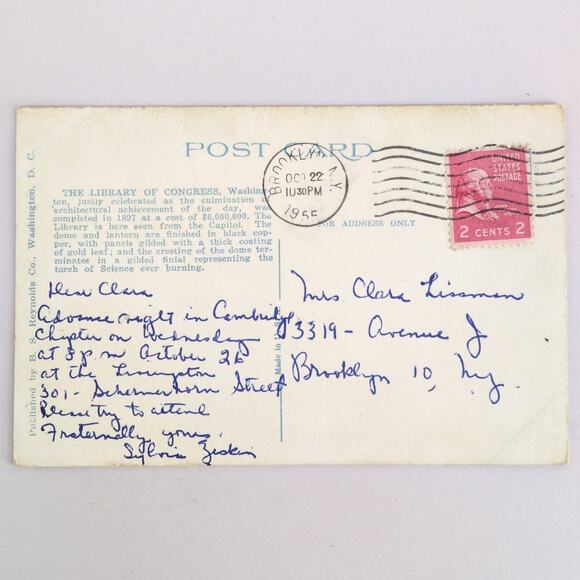 POST CARD
BROOKLYN, N.Y.
OCT 22
10 30 PM
1955
UNITED
STATES
POSTAGE
2 CENTS 2
Published by B. S. Reynolds Co., Washington, D. C.
THE LIBRARY OF CONGRESS, Washing-
ton, justly celebrated as the culmination of
architectural achievement of the day, was
completed in 1897 at a cost of $6,000,000. The
Library is here seen from the Capitol. The
dome and lantern are finished in black cop-
per, with panels gilded with a thick coating
of gold leaf; and the cresting of the dome ter-
minates in a gilded finial representing the
torch of Science ever burning.
FOR ADDRESS ONLY
Made in U.S.A.
Dear Clara
Advance night in Cambridge
Chapter on Wednesday
at 8 p.m October 26
at the Livingston
301 - Schermerhorn Street
Please try to attend
Fraternally yours.
Sylvia Ziskin
Mrs Clara Lissman
3319 - Avenue J
Brooklyn 10, N.Y.